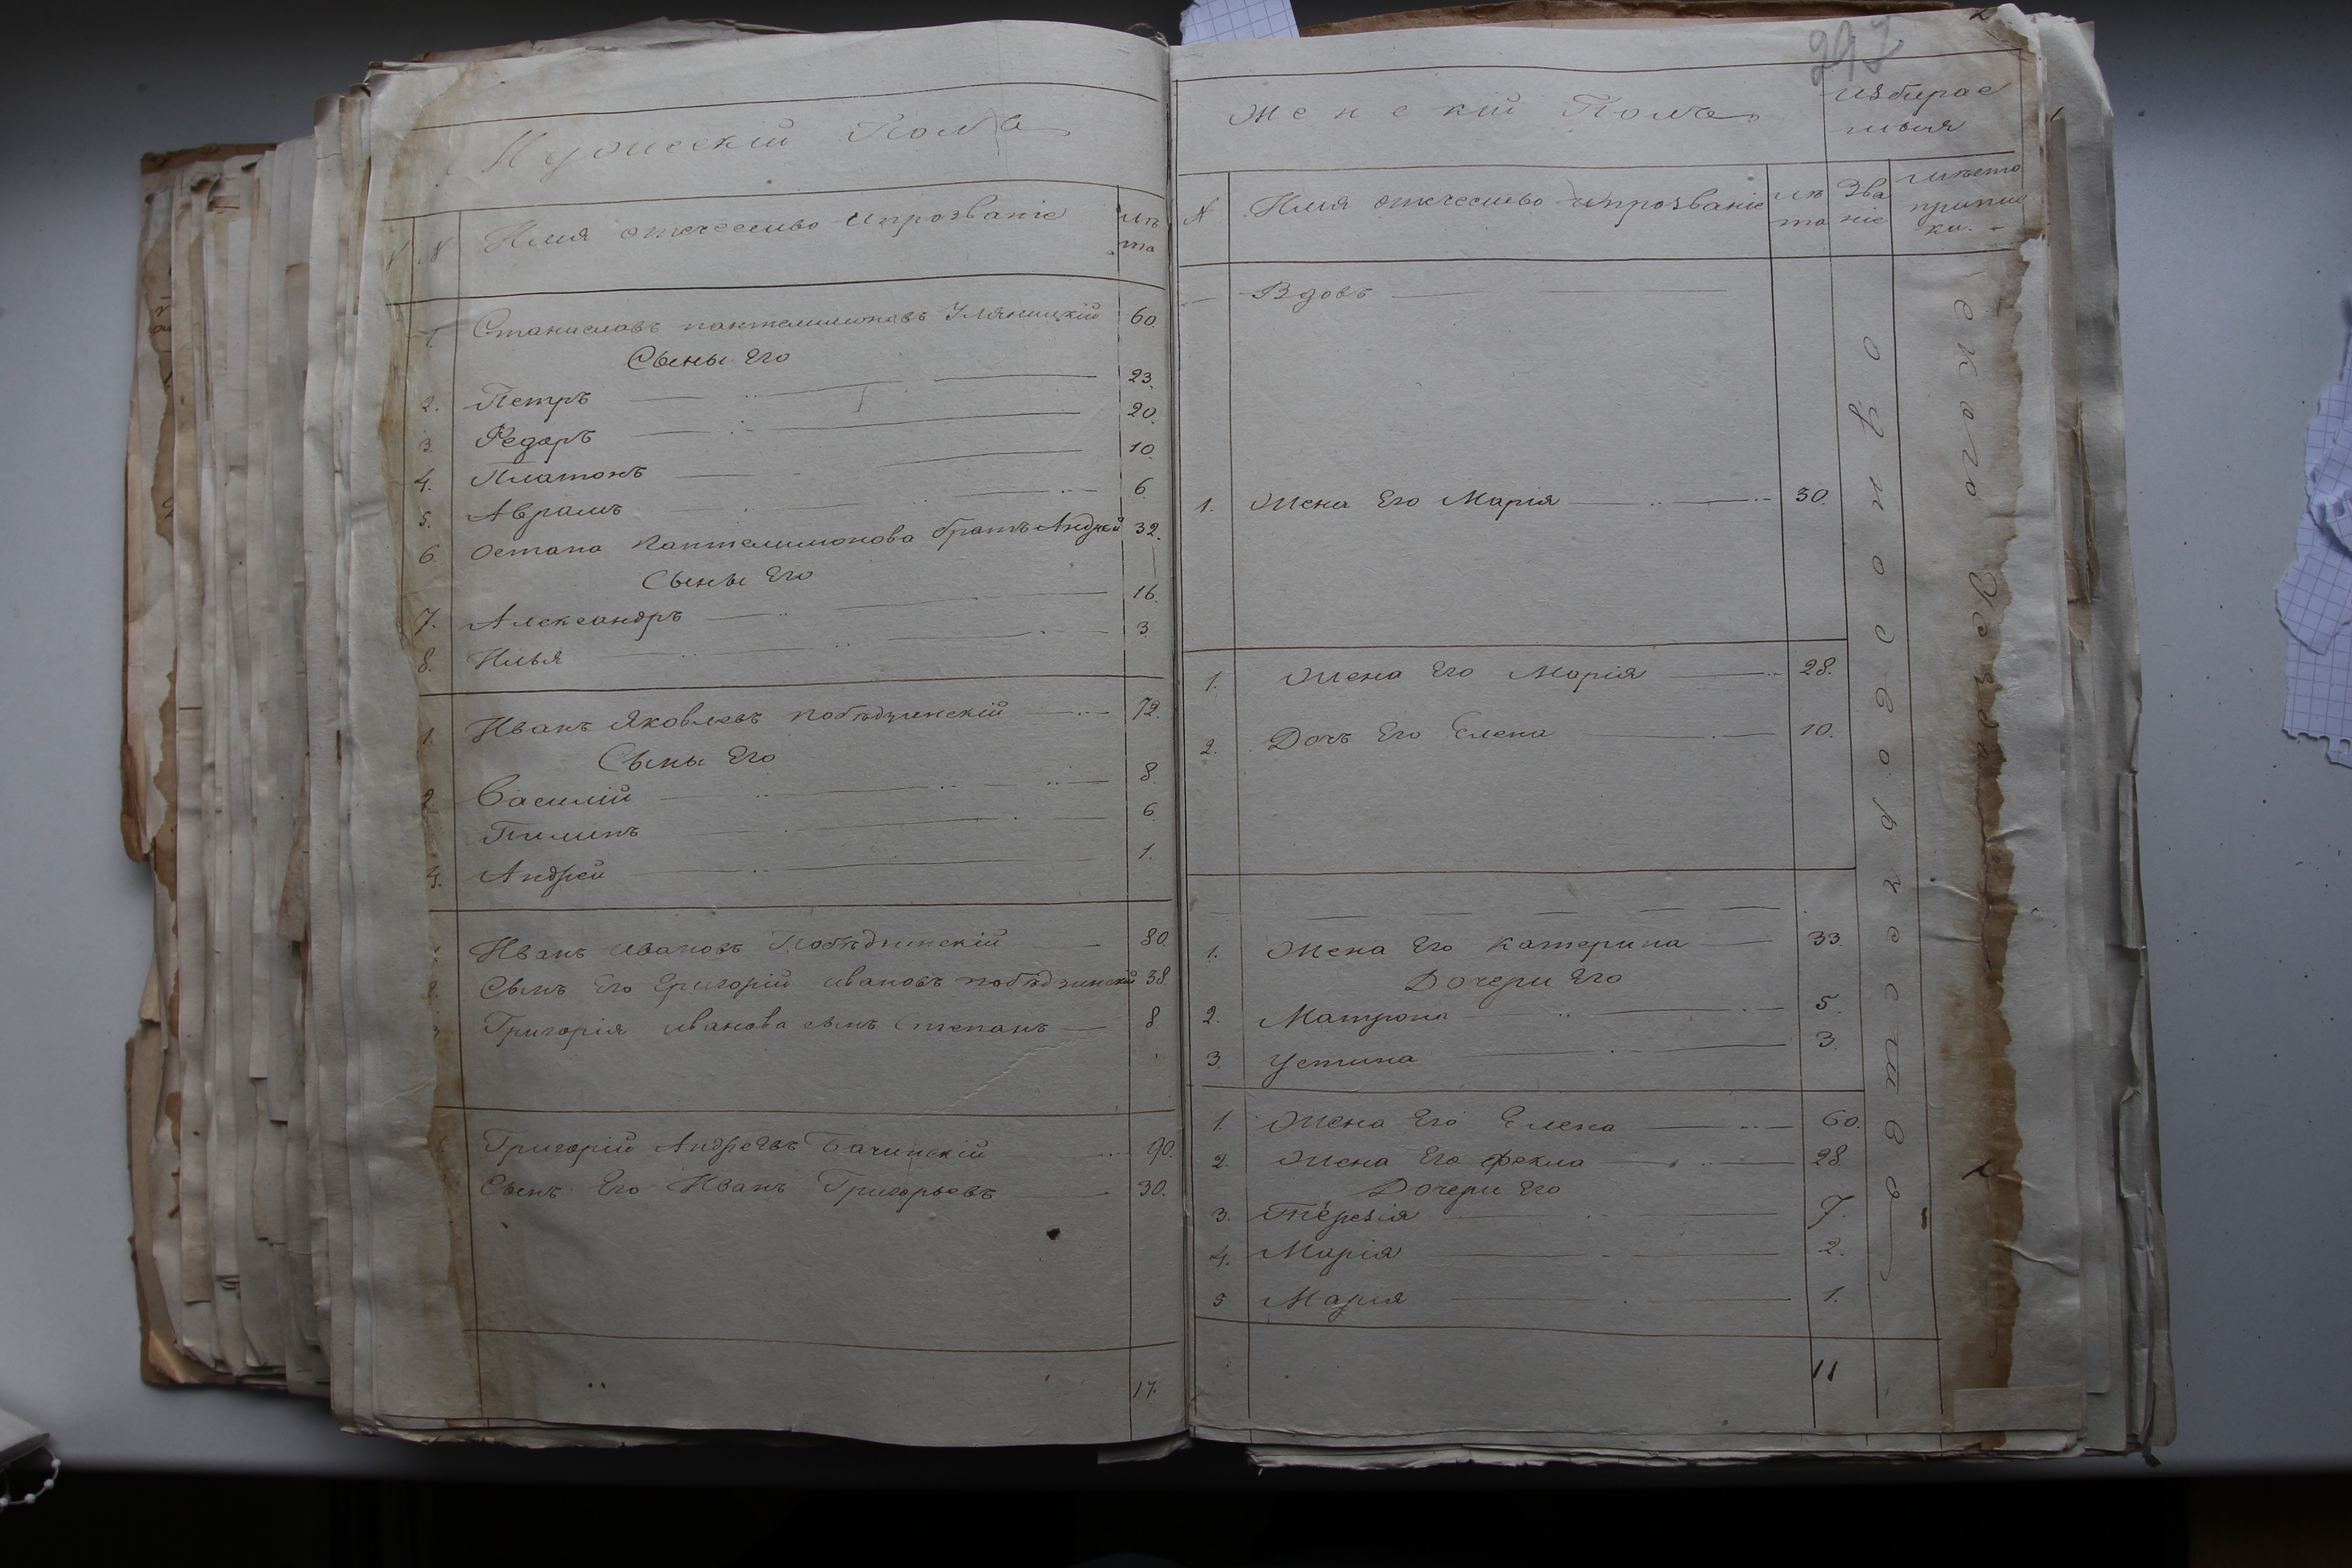 Мужескій Полъ
N
N
Имя отечество ипрозваніе
лѣ
та
1. Станиславъ пантелимоновъ Уляницкій 60.
Сыны Его
2. Петръ 23.
3. Федоръ 20.
4. Платонъ 10.
5. Аврамъ 6.
6. Остапа Пантелимонова братъ Андрей 32.
Сыны Его
7. Александръ 16.
8. Илья 3.
1. Иванъ Яковлевъ побѣдзинскій 72.
Сыны Его
2. Василій 8.
Пилипъ 6.
4. Андрей 1.
Иванъ ивановъ Побѣдзинскій 80.
2. Сынъ Его Григорій ивановъ побѣдзинскій 38.
Григорія иванова сынъ Степанъ 8
Григорій Андреевъ Бачинскій 90.
Сынъ Его Иванъ Григорьевъ 30.
17.
297
Женскій Полъ
избирае
мыя
N
Имя отечество ипрозваніе
лѣ
та
Зва
ніе
мѣсто
припис
ки.
Вдовъ
1. Жена Его Марія 30.
1. Жена Его Марія 28.
2. Дочъ Его Елена 10.
1. Жена Его Катерина 33.
Дочери Его
2. Матрона 5.
3. Устина 3.
1. Жена Его Елена 60.
2. Жена Его фекла 28.
Дочери Его
3. Терезія 7.
4. Марія 2.
5 Марія 1.
11
однодворчество
скаго Уезда